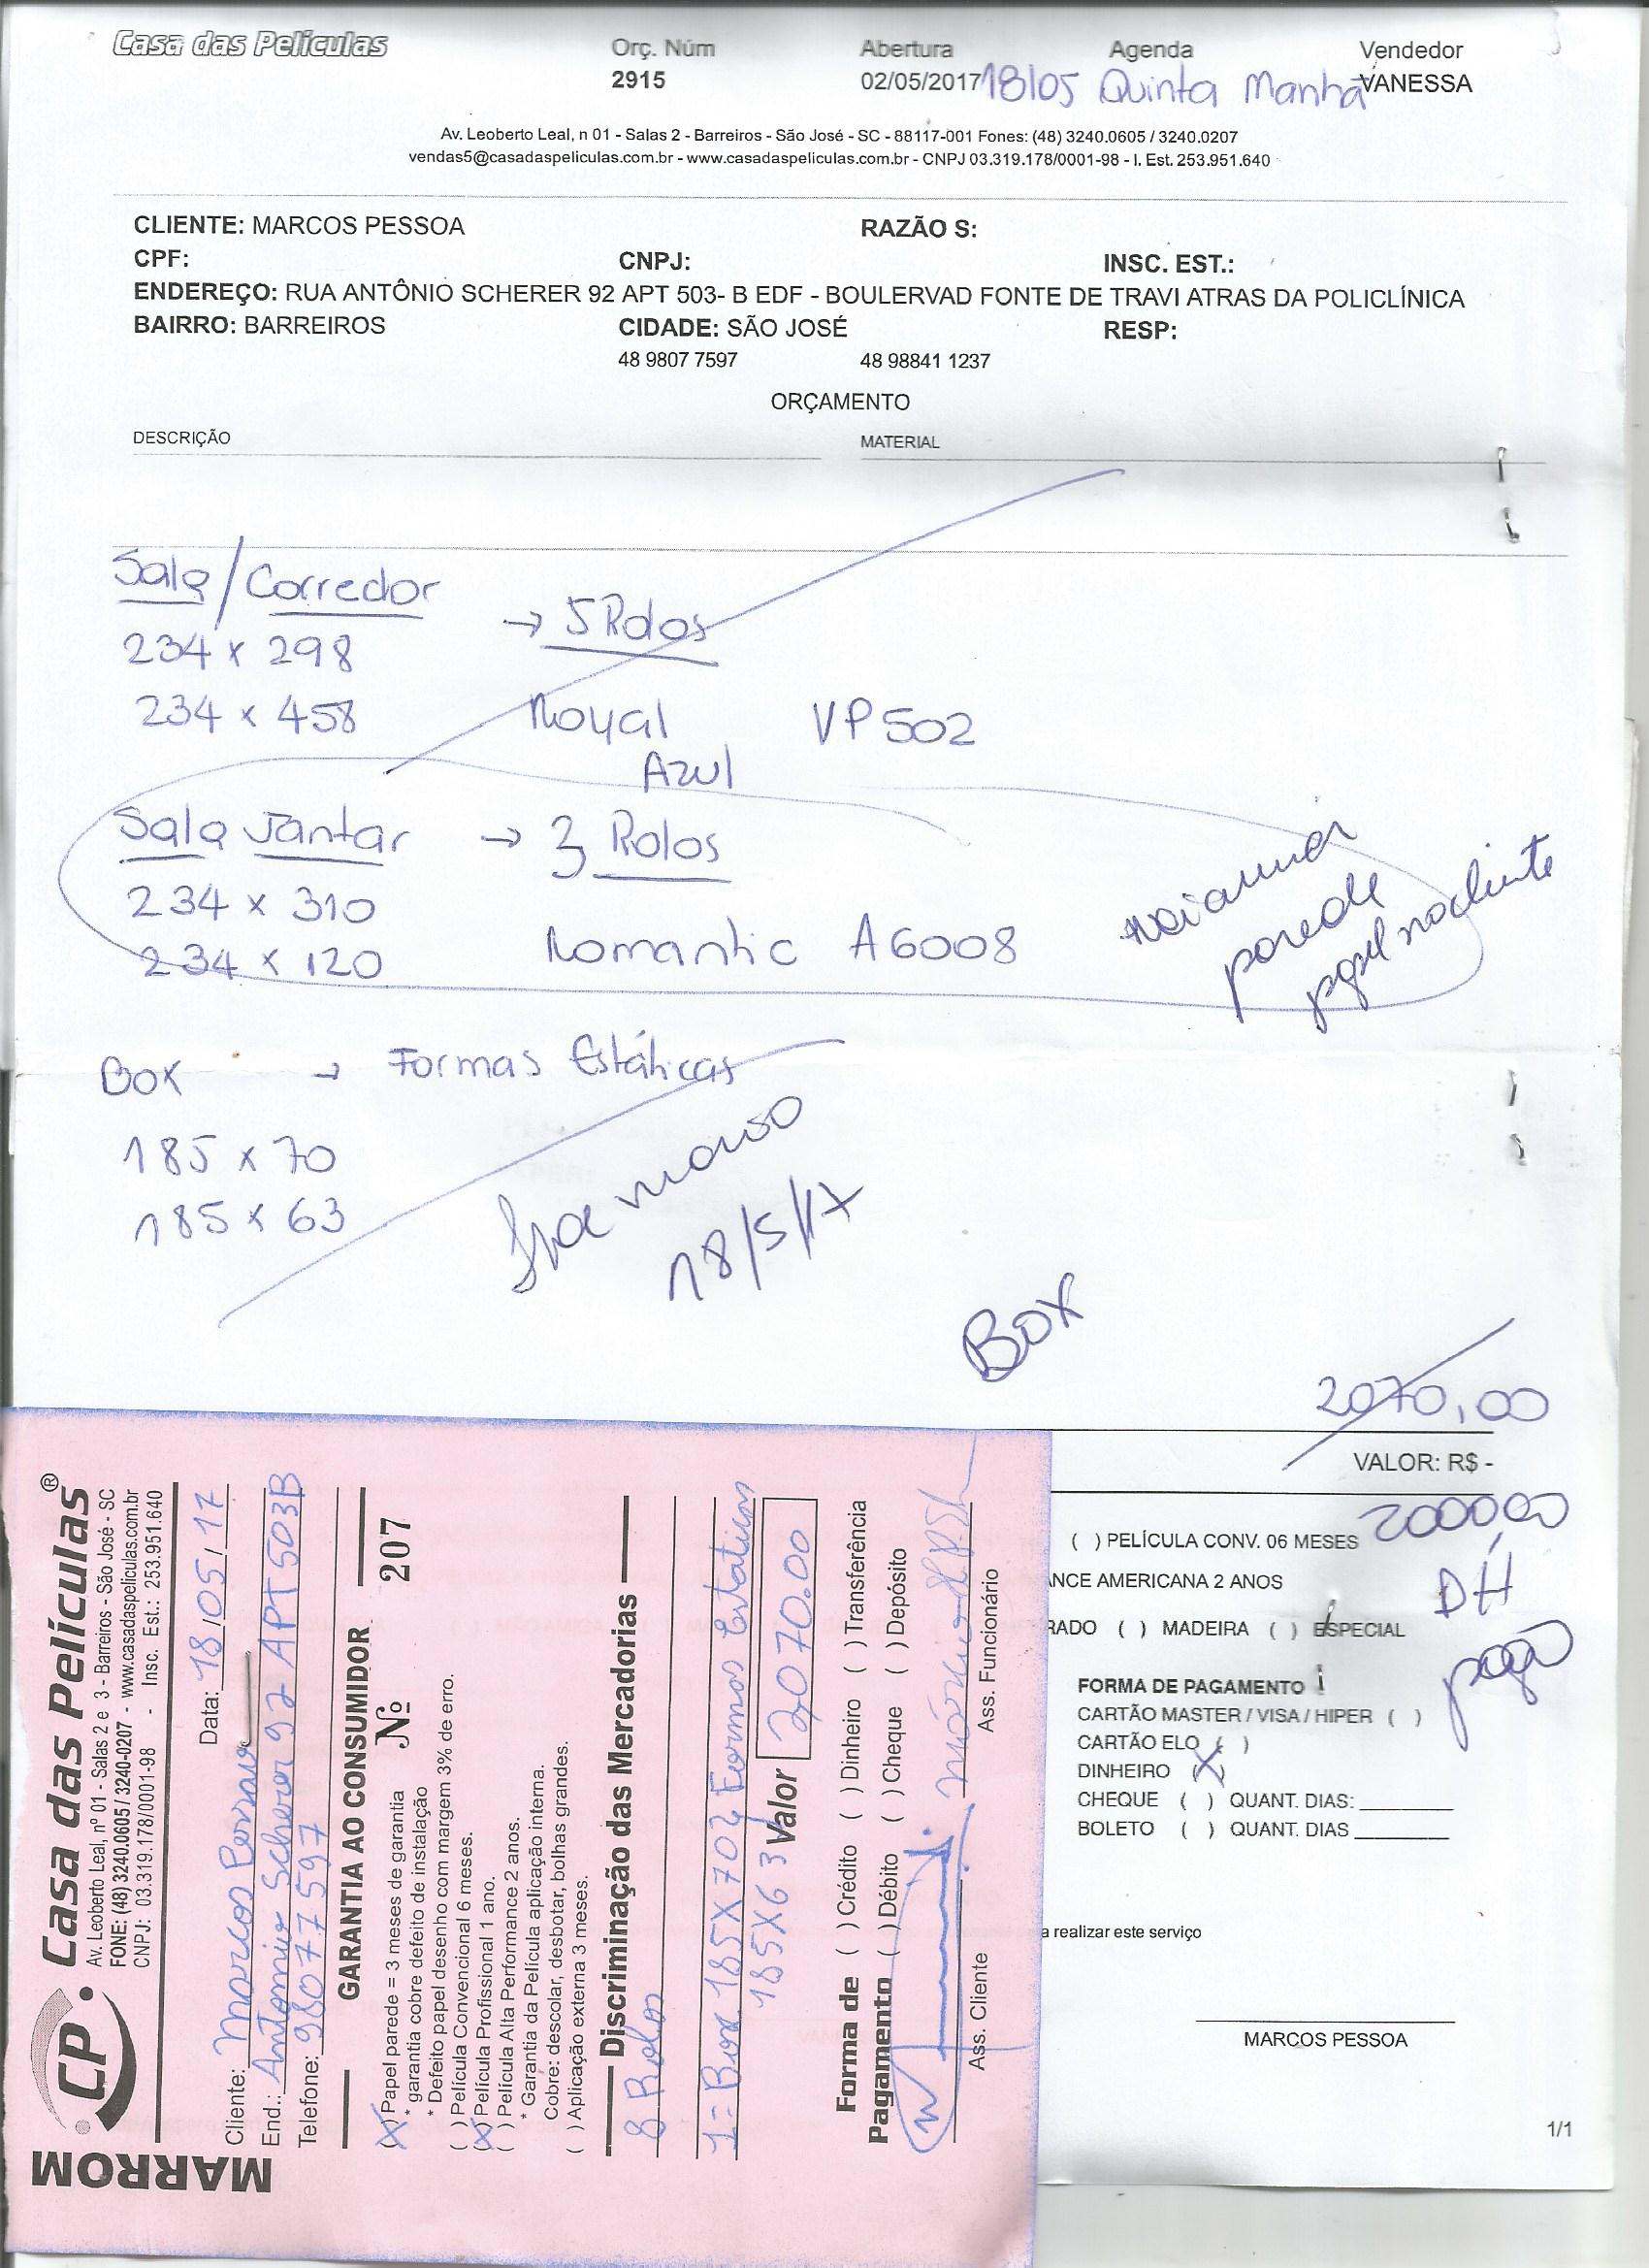 Casa das Películas
Orç. Núm Abertura Agenda Vendedor
2915 02/05/2017 18/05 Quinta Manhã VANESSA
Av. Leoberto Leal, n 01 - Salas 2 - Barreiros - São José - SC - 88117-001 Fones: (48) 3240.0605 / 3240.0207
vendas5@casadaspeliculas.com.br - www.casadaspeliculas.com.br - CNPJ 03.319.178/0001-98 - I. Est. 253.951.640
CLIENTE: MARCOS PESSOA RAZÃO S:
CPF: CNPJ: INSC. EST.:
ENDEREÇO: RUA ANTÔNIO SCHERER 92 APT 503- B EDF - BOULERVAD FONTE DE TRAVI ATRAS DA POLICLÍNICA
BAIRRO: BARREIROS CIDADE: SÃO JOSÉ RESP:
48 9807 7597 48 98841 1237
ORÇAMENTO
DESCRIÇÃO MATERIAL
Sala/Corredor → 5 Rolos
234 x 298
234 x 458 Royal VP502
Azul
Sala Jantar → 3 Rolos
234 x 310
234 x 120 Romantic A6008
parede
papel no cliente
BOX → Formas Estáticas
185 x 70
185 x 63
18/5/17
BOX
2070,00
VALOR: R$ -
200000
( ) PELÍCULA CONV. 06 MESES
NCE AMERICANA 2 ANOS
DH
RADO ( ) MADEIRA ( ) ESPECIAL
pago
FORMA DE PAGAMENTO
CARTÃO MASTER / VISA / HIPER ( )
CARTÃO ELO ( )
DINHEIRO (X)
CHEQUE ( ) QUANT. DIAS:
BOLETO ( ) QUANT. DIAS
a realizar este serviço
MARCOS PESSOA
1/1
MARROM
CP
Casa das Películas®
Av. Leoberto Leal, nº 01 - Salas 2 e 3 - Barreiros - São José - SC
FONE: (48) 3240.0605 / 3240-0207 - www.casadaspeliculas.com.br
CNPJ: 03.319.178/0001-98 - Insc. Est.: 253.951.640
Data: 18/05/17
Cliente: Marcos Pessoa
End.: Antonio Scherer 92 APT 503B
Telefone: 98077597
GARANTIA AO CONSUMIDOR
Nº 207
(X) Papel parede = 3 meses de garantia
* garantia cobre defeito de instalação
* Defeito papel desenho com margem 3% de erro.
( ) Película Convencional 6 meses.
(X) Película Profissional 1 ano.
( ) Película Alta Performance 2 anos.
* Garantia da Película aplicação interna.
Cobre: descolar, desbotar, bolhas grandes.
( ) Aplicação externa 3 meses.
Discriminação das Mercadorias
8 Rolos
1 = Box 185X70 Formas Estaticas
185X63 Valor 2070.00
Forma de Pagamento
( ) Crédito ( ) Dinheiro ( ) Transferência
( ) Débito ( ) Cheque ( ) Depósito
Ass. Cliente Ass. Funcionário